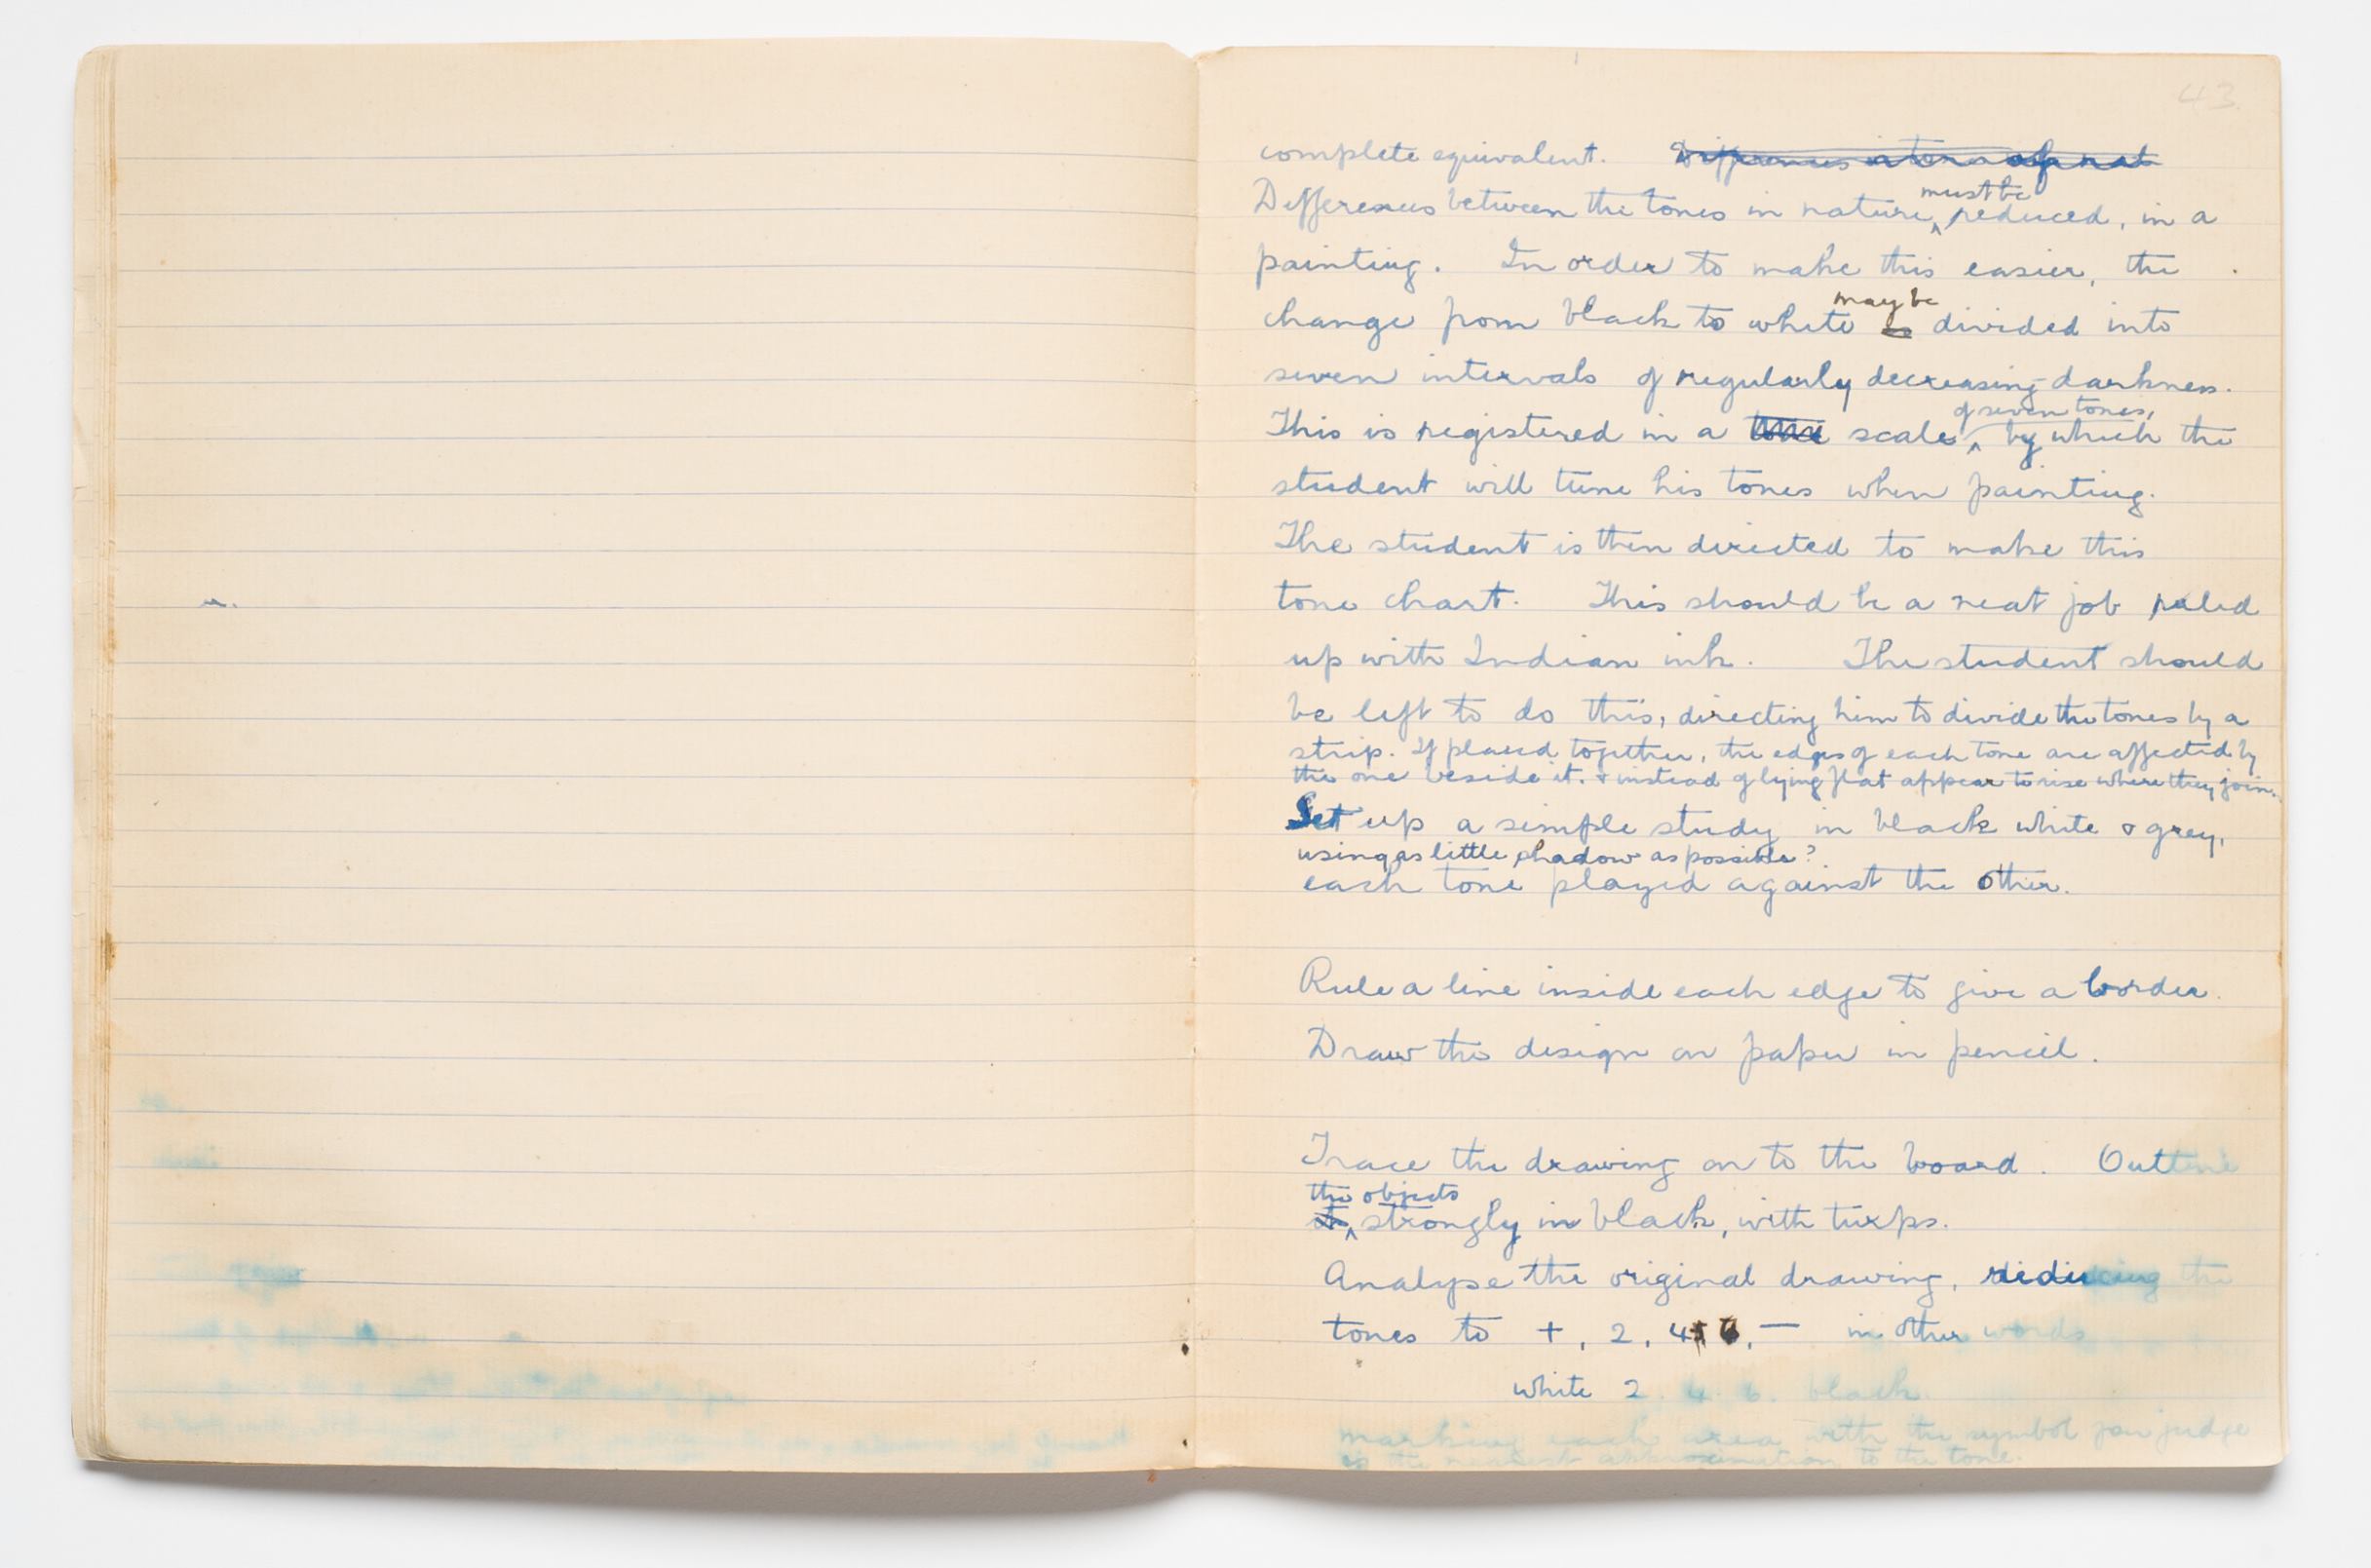 43.
complete equivalent. Differences in tones of nat
must be
Differences between the tones in nature, reduced, in a
painting. In order to make this easier, the
may be
change from black to white is divided into
seven intervals of regularly decreasing darkness.
of seven tones,
This is registered in a tone scale, by which the
student will tune his tones when painting.
The student is then directed to make this
tone chart. This should be a neat job ruled
up with Indian ink. The student should
be left to do this, directing him to divide the tones by a
strip. If placed together, the edges of each tone are affected by
the one beside it. & instead of lying flat appear to rise where they join.
Set up a simple study in black white & grey,
using as little shadow as possible?
each tone played against the other.
Rule a line inside each edge to give a border.
Draw the design on paper in pencil.
Trace the drawing on to the board. Outline
the objects
it strongly in black, with turps.
Analyse the original drawing, reducing the
tones to +, 2, 4 + 6, — in other words
white 2. 4. 6. black.
marking each area with the symbol you judge
is the nearest approximation to the tone.